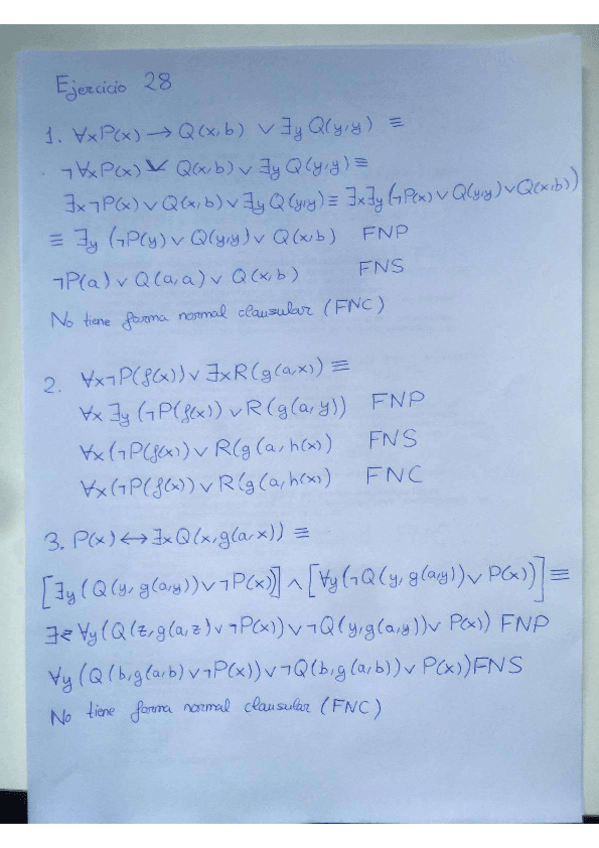 Ejercicio 28
1. ∀xP(x) → Q(x,b) ∨ ∃y Q(y,y) ≡
¬∀xP(x) ∨ Q(x,b) ∨ ∃y Q(y,y) ≡
∃x¬P(x) ∨ Q(x,b) ∨ ∃y Q(y,y) ≡ ∃x∃y (¬P(x) ∨ Q(y,y) ∨ Q(x,b))
≡ ∃y (¬P(y) ∨ Q(y,y) ∨ Q(x,b) FNP
¬P(a) ∨ Q(a,a) ∨ Q(x,b) FNS
No tiene forma normal clausular (FNC)
2. ∀x¬P(f(x)) ∨ ∃xR(g(a,x)) ≡
∀x ∃y (¬P(f(x)) ∨ R(g(a,y)) FNP
∀x (¬P(f(x)) ∨ R(g(a,h(x)) FNS
∀x (¬P(f(x)) ∨ R(g(a,h(x)) FNC
3. P(x) ↔ ∃x Q(x,g(a,x)) ≡
[∃y (Q(y,g(a,y)) ∨ ¬P(x))] ∧ [∀y (¬Q(y,g(a,y)) ∨ P(x))] ≡
∃z ∀y (Q(z,g(a,z) ∨ ¬P(x)) ∨ ¬Q(y,g(a,y)) ∨ P(x)) FNP
∀y (Q(b,g(a,b) ∨ ¬P(x)) ∨ ¬Q(b,g(a,b)) ∨ P(x)) FNS
No tiene forma normal clausular (FNC)